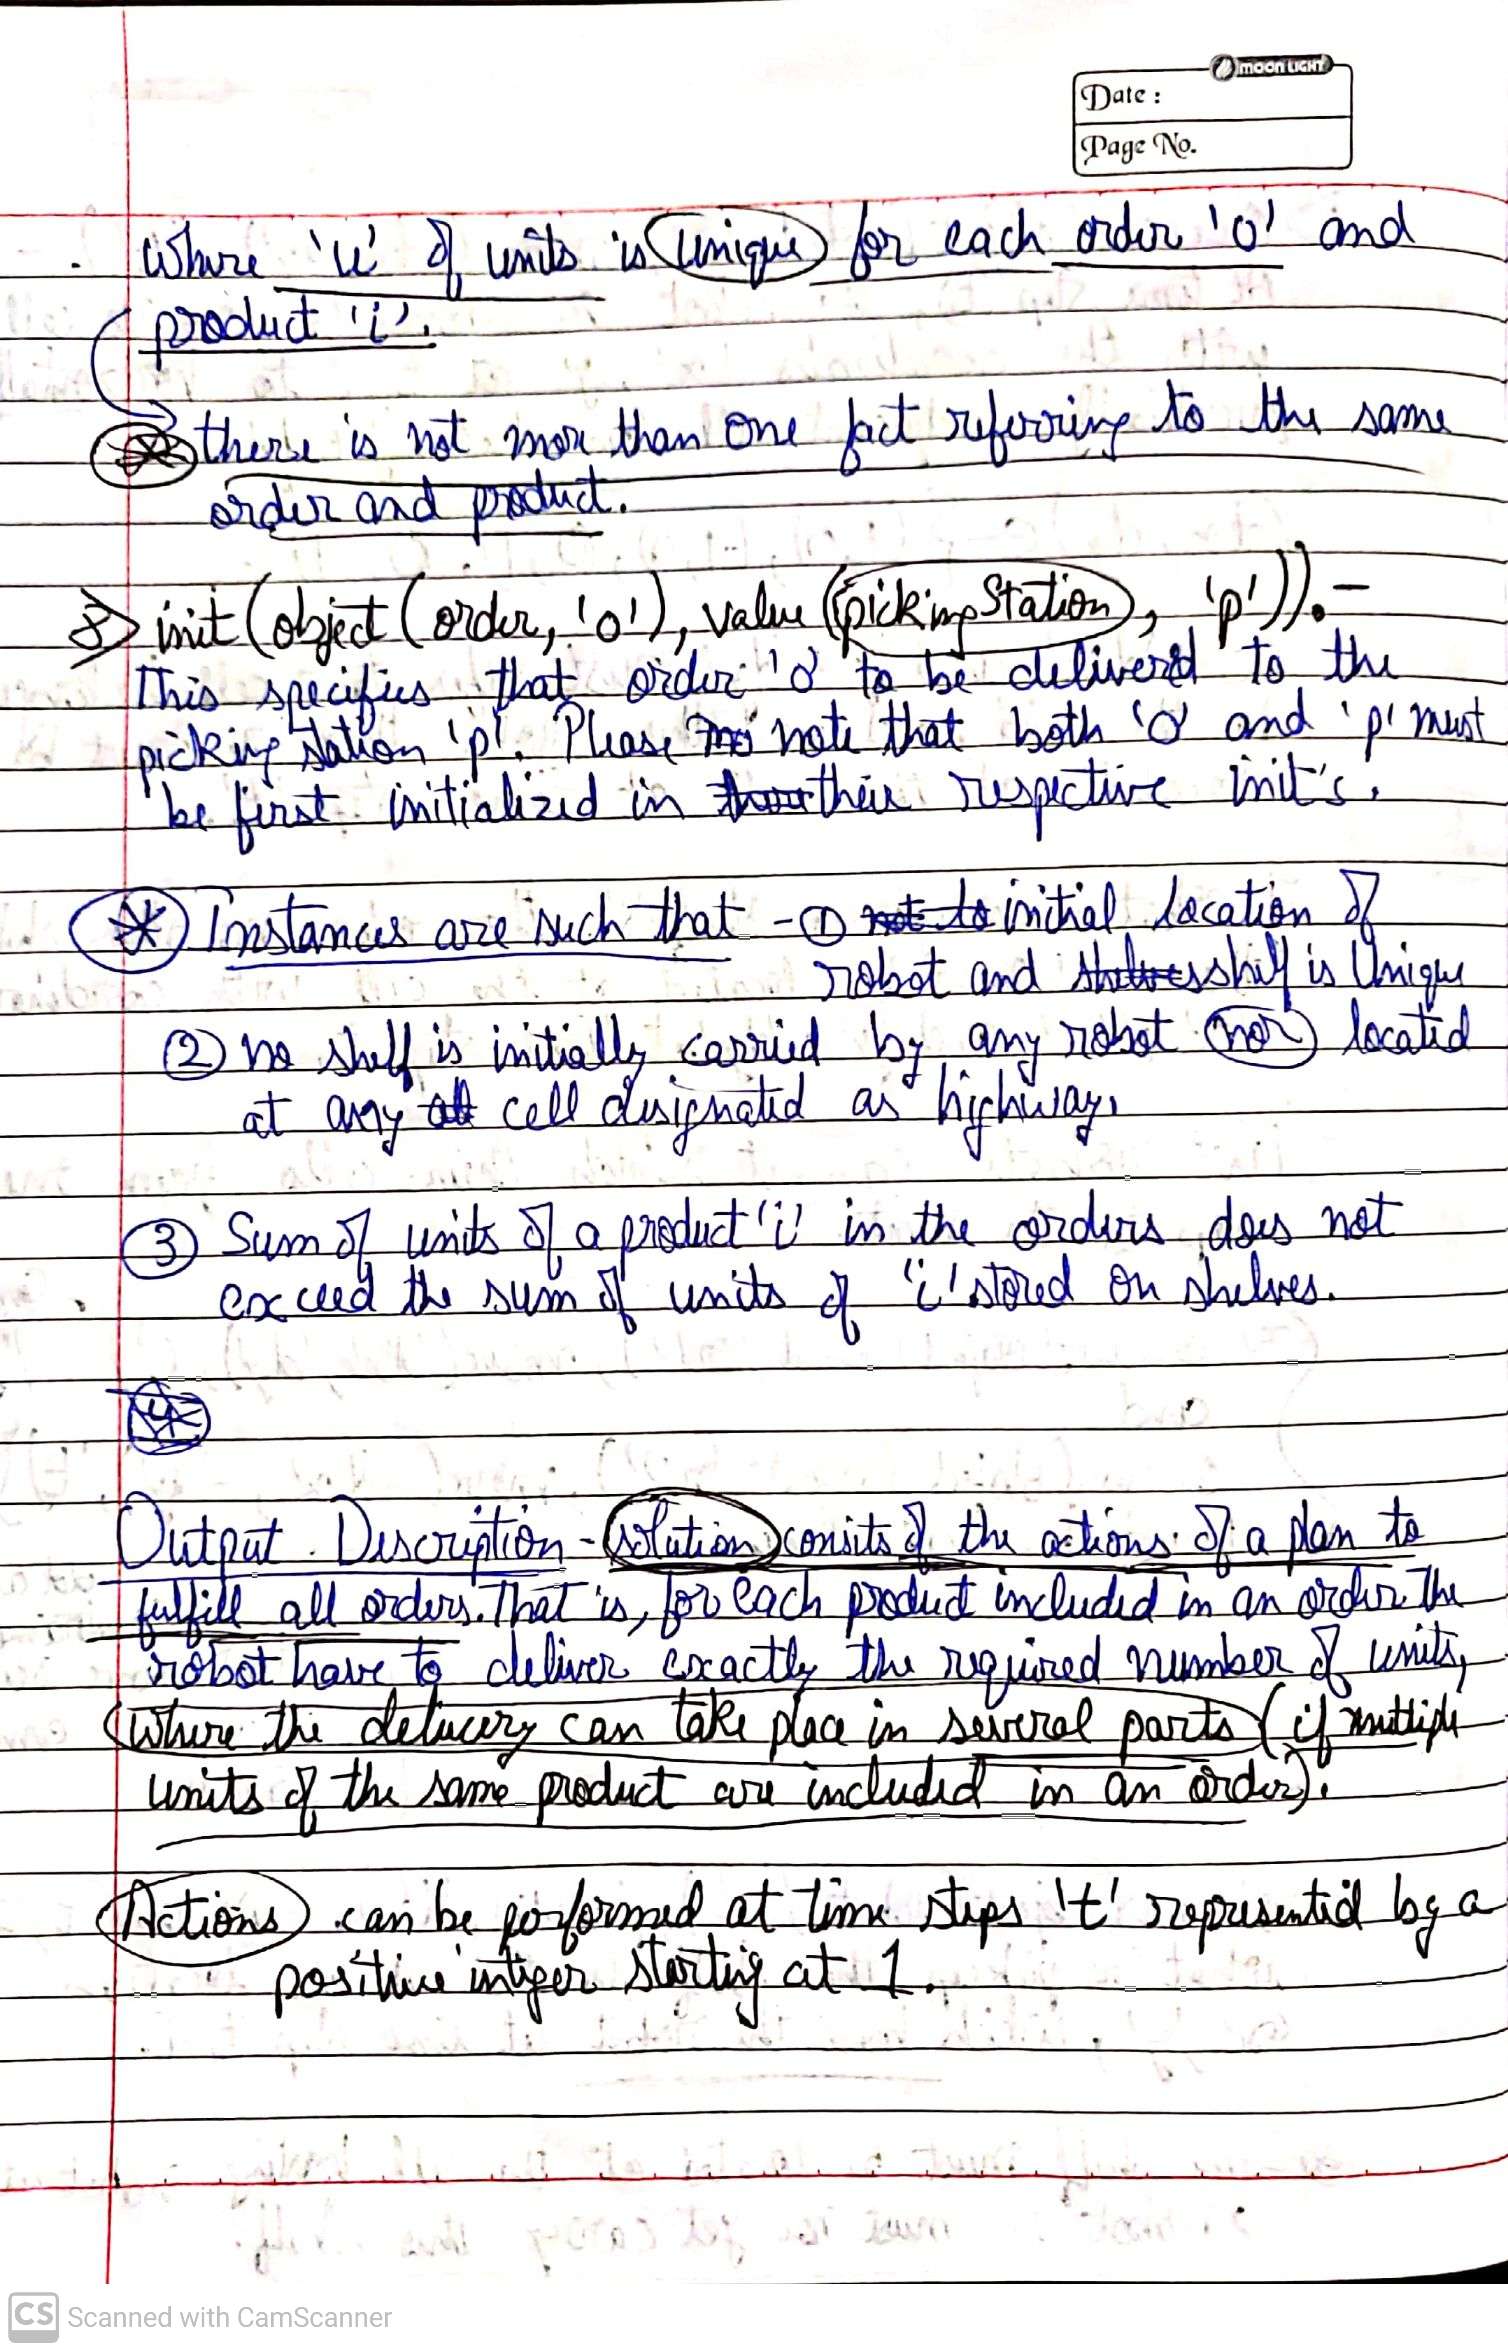 MOONLIGHT
Date :
Page No.
where 'u' of units is unique for each order 'o' and
product 'i'.
there is not more than one fact referring to the same
order and product.
3> init(object(order, 'o'), value(pickingStation, 'p')). -
This specifies that order 'o' to be delivered to the
picking station 'p'. Please note that both 'o' and 'p' must
be first initialized in their respective init's.
* Instances are such that - ① initial location of
robot and shelf is Unique
② no shelf is initially carried by any robot nor located
at any cell designated as highway.
③ Sum of units of a product 'i' in the orders does not
exceed the sum of units of 'i' stored on shelves.
Output Description - solution consits of the actions of a plan to
fulfill all orders. That is, for each product included in an order the
robot have to deliver exactly the required number of units,
where the delivery can take place in several parts (if multiple
units of the same product are included in an order).
Actions can be performed at time steps 't' represented by a
positive integer starting at 1.
CS Scanned with CamScanner